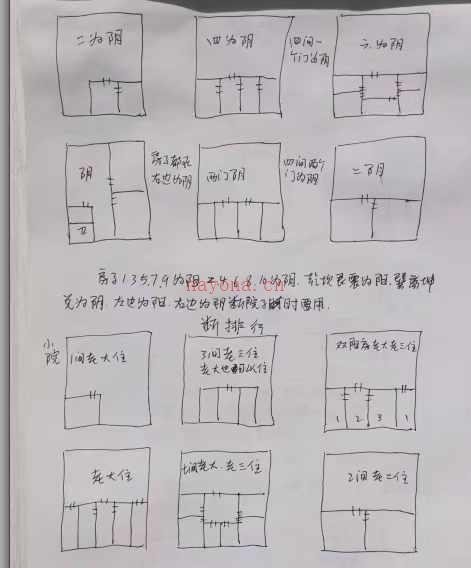 二为阴
四为阴
四间一
个门为阴
六为阴
阴
卫
房子都在
右边为阴
两门阴
四间两个
门为阴
二阴
房子1.3.5.7.9为阳.2.4.6.8.10为阴.乾坎艮震为阳.巽离坤
兑为阴.左边为阳.右边为阴断院子时要用.
nayona.cn
断排行
小院
1间老大住
3间老三住
老大也可以住
双阳房老大老三住
1 2 3 1
老大住
老大.老三住
2间老二住